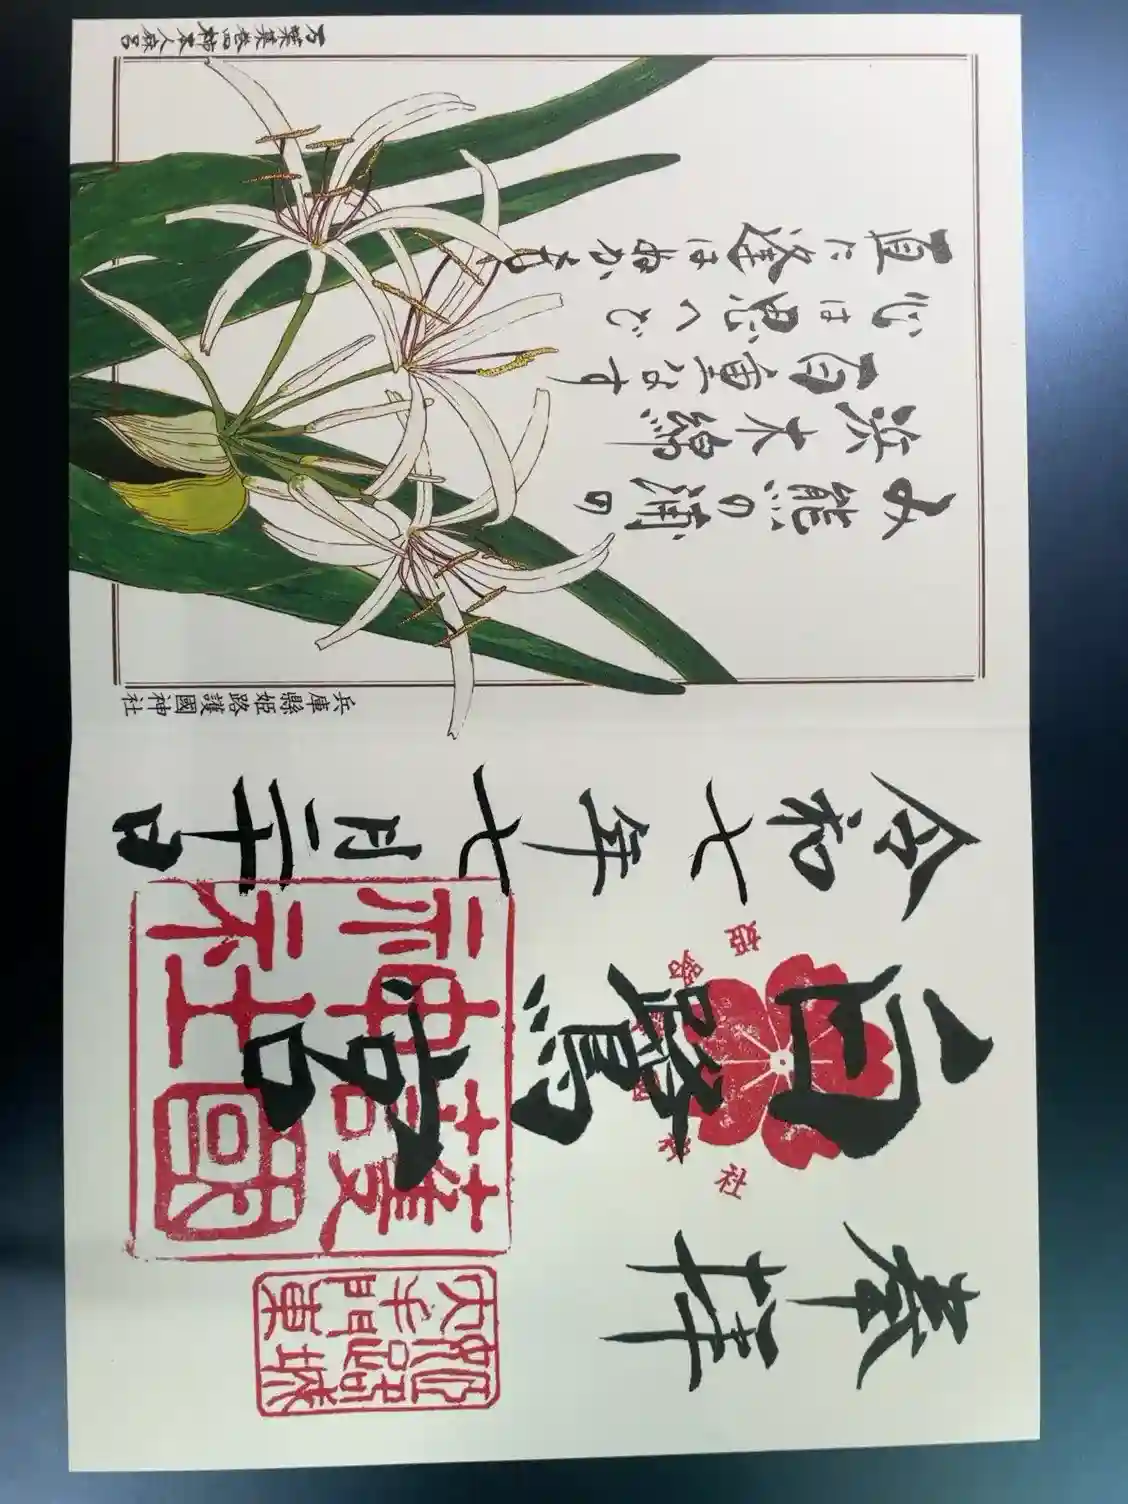 み熊の浦の
浜木綿
百重なす
心は思へど
直に逢はぬかも
万葉集巻四柿本人麻呂
兵庫縣姫路護國神社
奉拝
白鷺宮
令和七年七月二十日
護國
神社
姫路城
大手門東